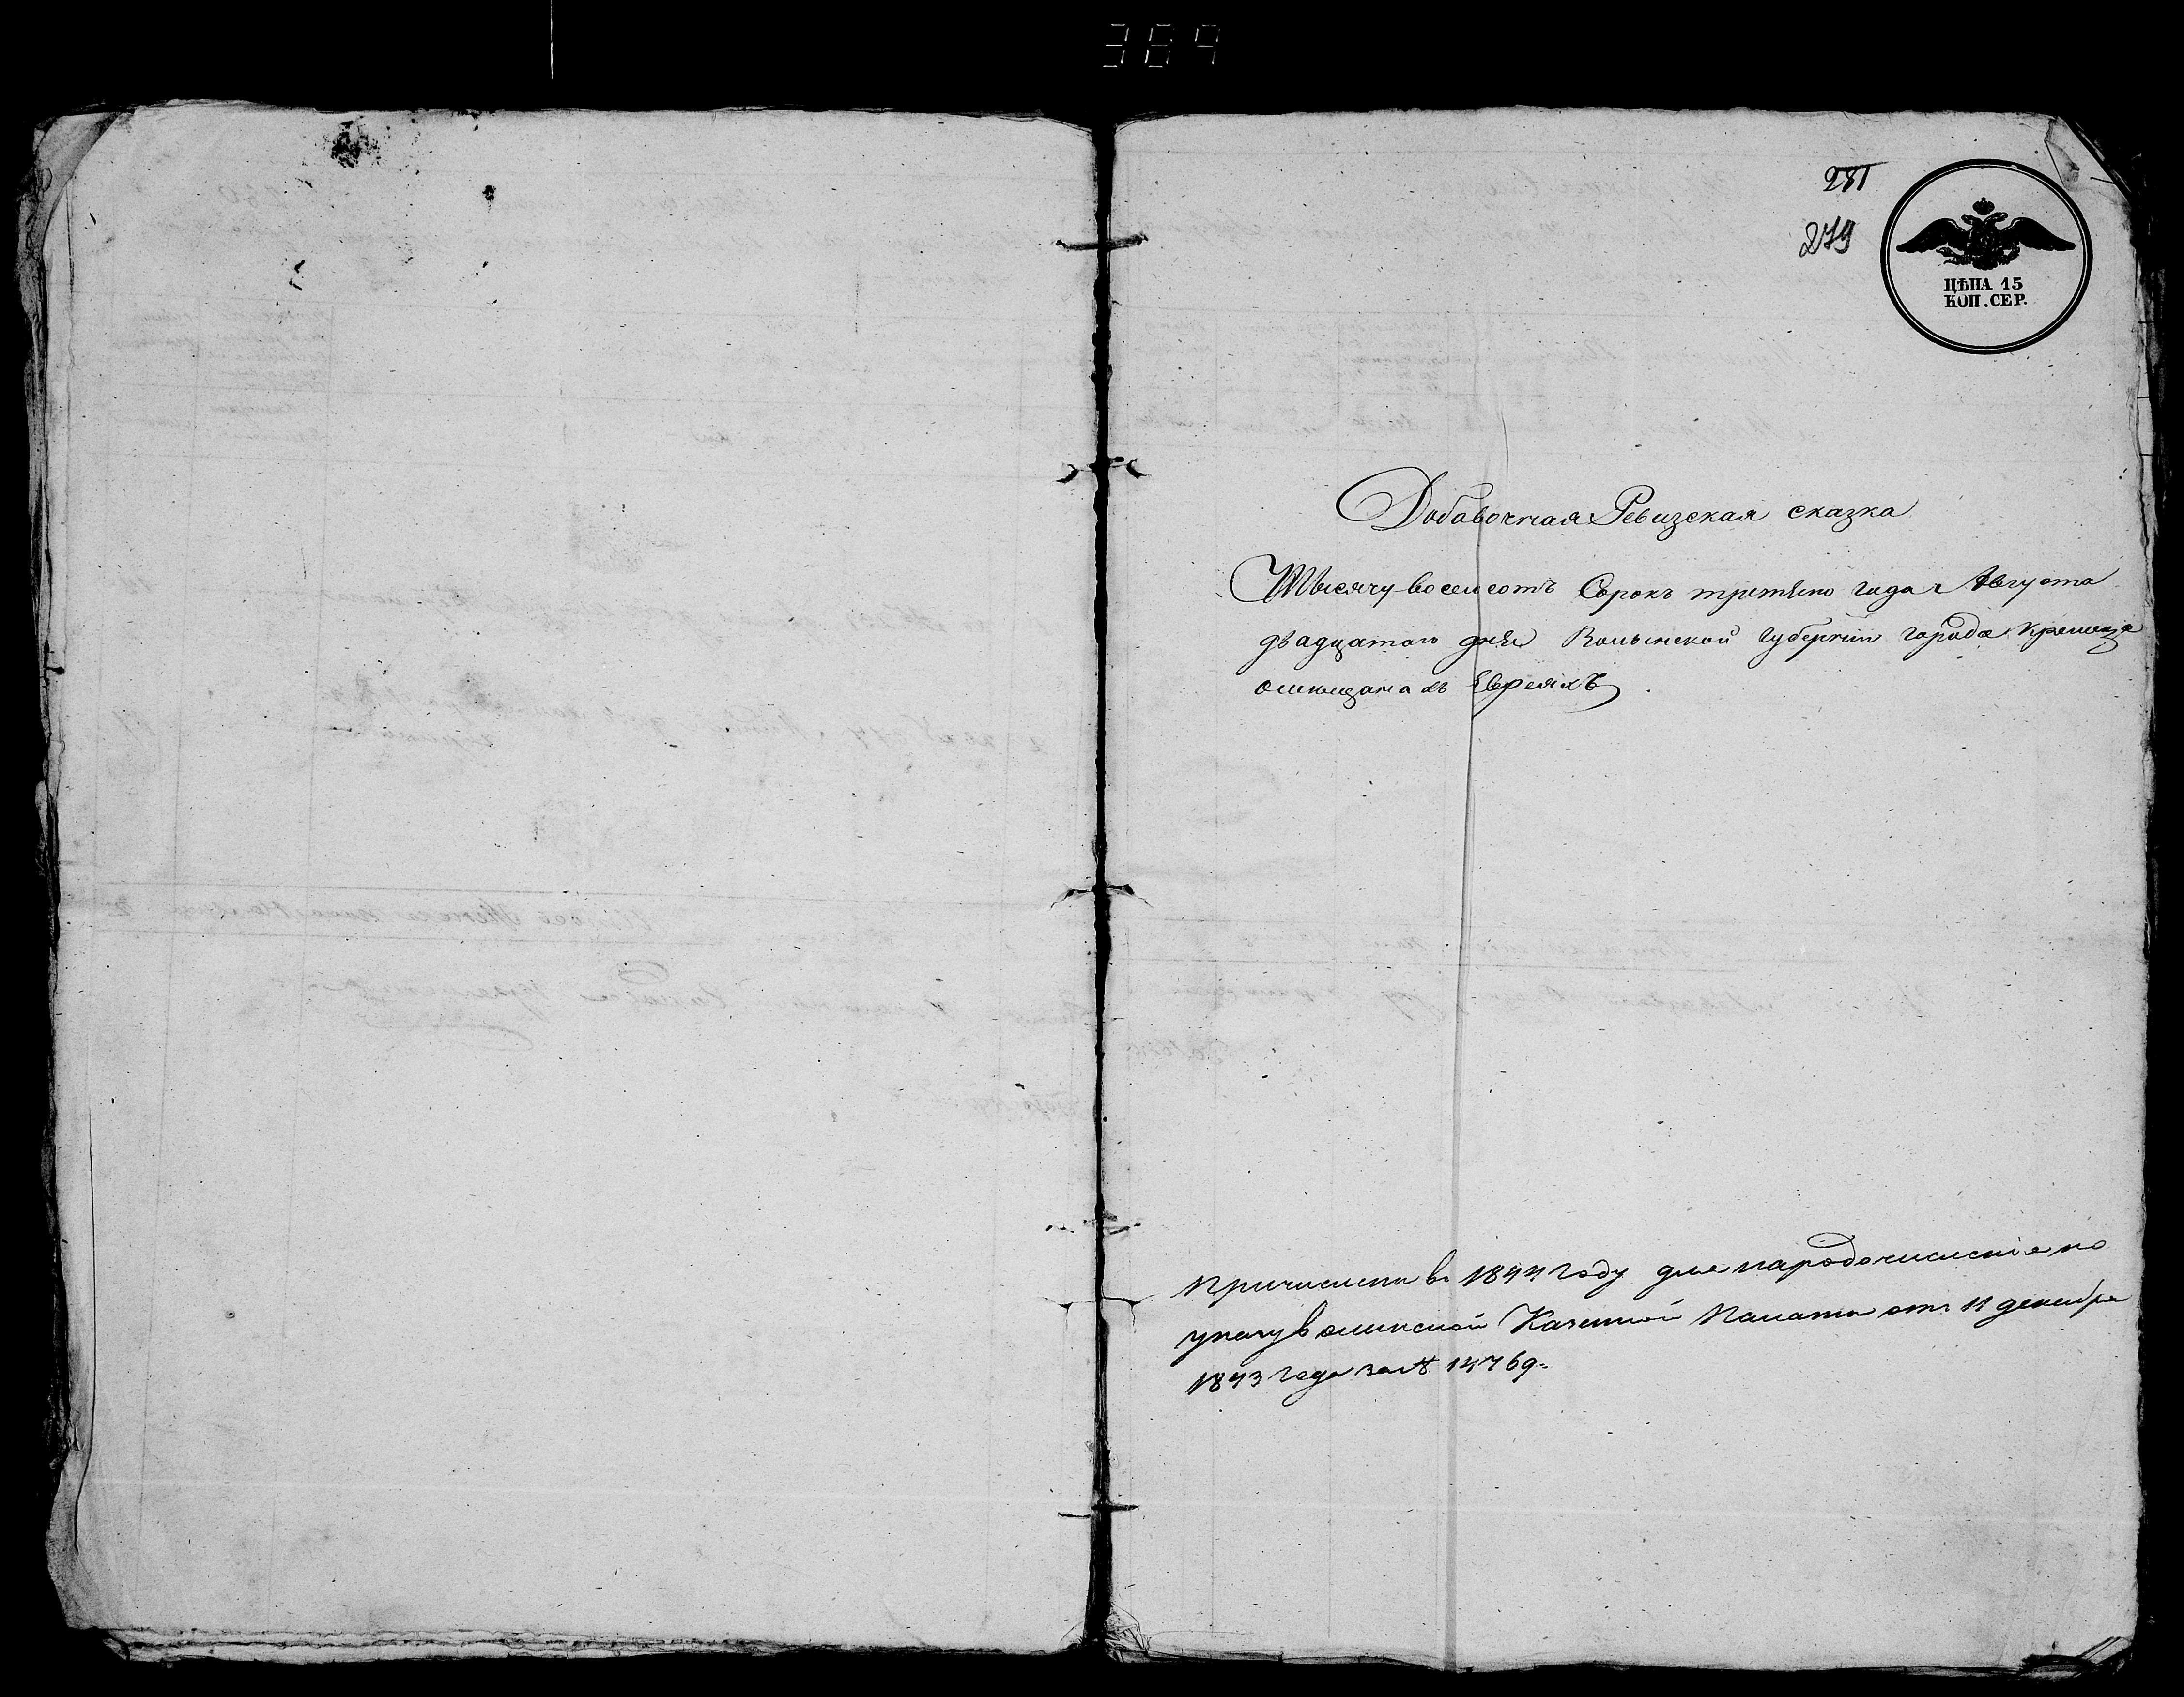 384
281
279
ЦѢНА 15
КОП. СЕР.
Добавочная Ревизская сказка
Тысячу восемсотъ Сорокъ третьяго года Августа
двадцатаго дня Волынской губернии города Кременца
омещанахъ Евреяхъ
Причислены в 1844 году для народочисления по
указу Волынской Казенной Палаты отъ 11 декабря
1843 года за № 14769